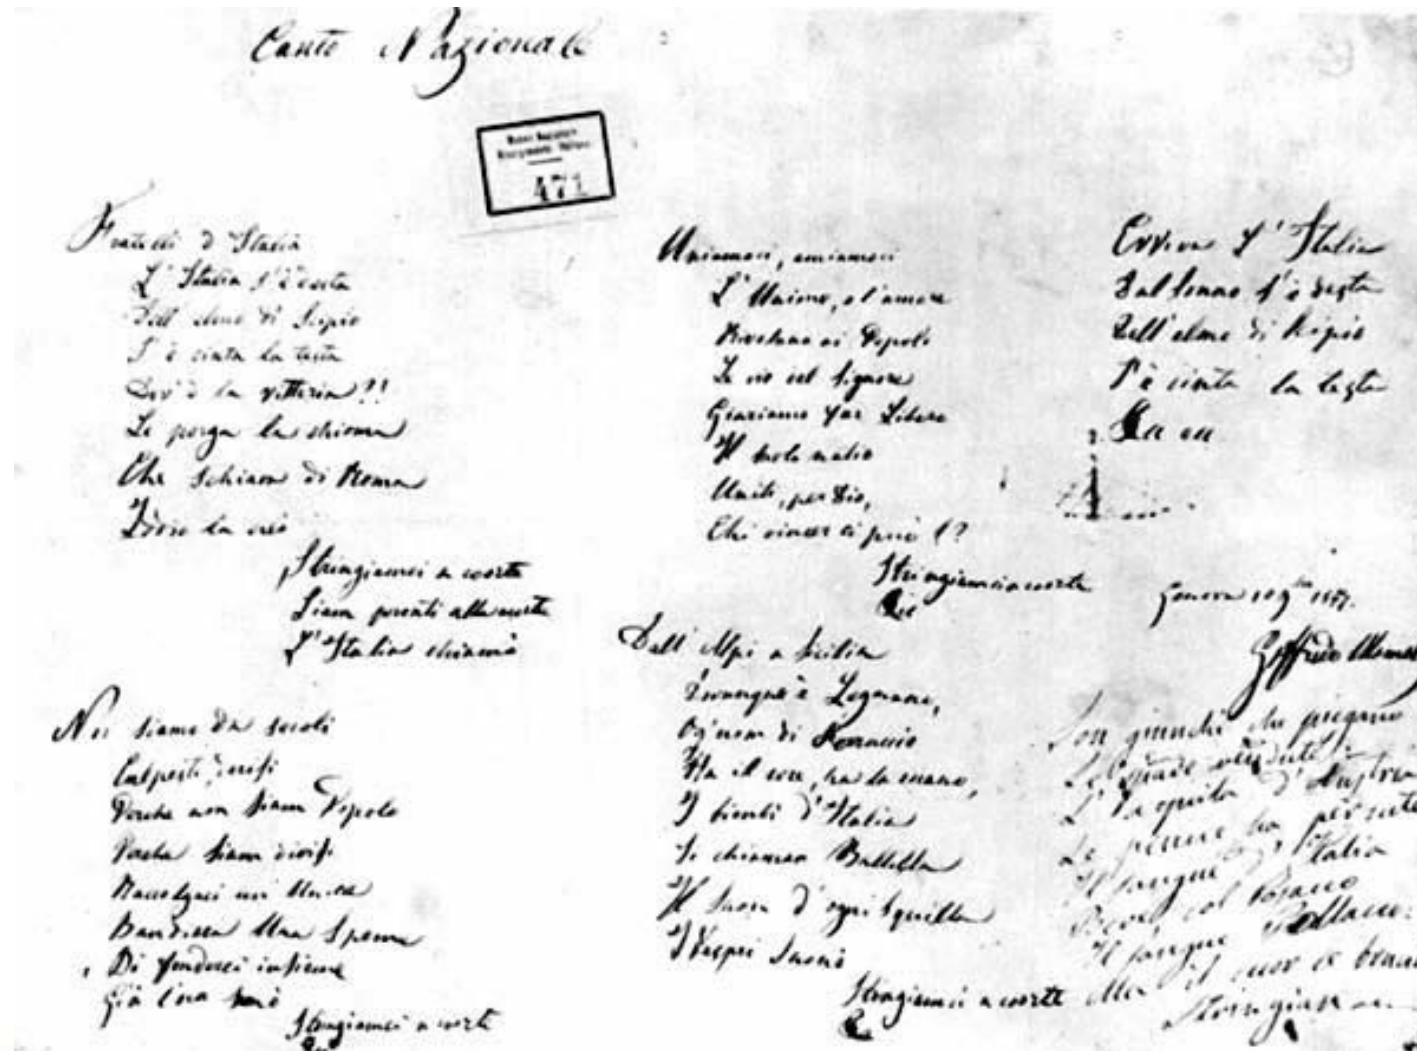 Canto Nazionale
Museo Nazionale
Risorgimento Italiano
471
Fratelli d'Italia
L'Italia s'è desta
Dell'elmo di Scipio
S'è cinta la testa
Dov'è la vittoria?!
Le porga la chioma
Che schiava di Roma
Iddio la creò
Stringiamci a coorte
Siam pronti alla morte
L'Italia chiamò
Noi siamo da secoli
Calpesti, derisi
Perché non siam Popolo
Perché siam divisi
Raccolgaci un'Unica
Bandiera Una Speme
Di fonderci insieme
Già l'ora suonò
Stringiamci a coorte
Uniamoci, amiamoci
L'Unione, e l'amore
Rivelano ai Popoli
Le vie del Signore
Giuriamo far Libero
Il suolo natio
Uniti, per Dio,
Chi vincer ci può!?
Stringiamci a coorte
Dall'Alpi a Sicilia
Dovunque è Legnano,
Ogn'uom di Ferruccio
Ha il core, ha la mano,
I bimbi d'Italia
Si chiaman Balilla
Il suon d'ogni squilla
I Vespri suonò
Stringiamci a coorte
Evviva l'Italia
Dal sonno s'è desta
Dell'elmo di Scipio
S'è cinta la testa
Genova 10 9bre 1847.
Goffredo Mameli
Son giunchi che piegano
Le spade vendute
L'Aquila d'Austria
Le penne ha perdute
Il sangue d'Italia
Bevé col Cosacco
Il sangue Polacco:
Ma il cuor le bruciò
Stringiam